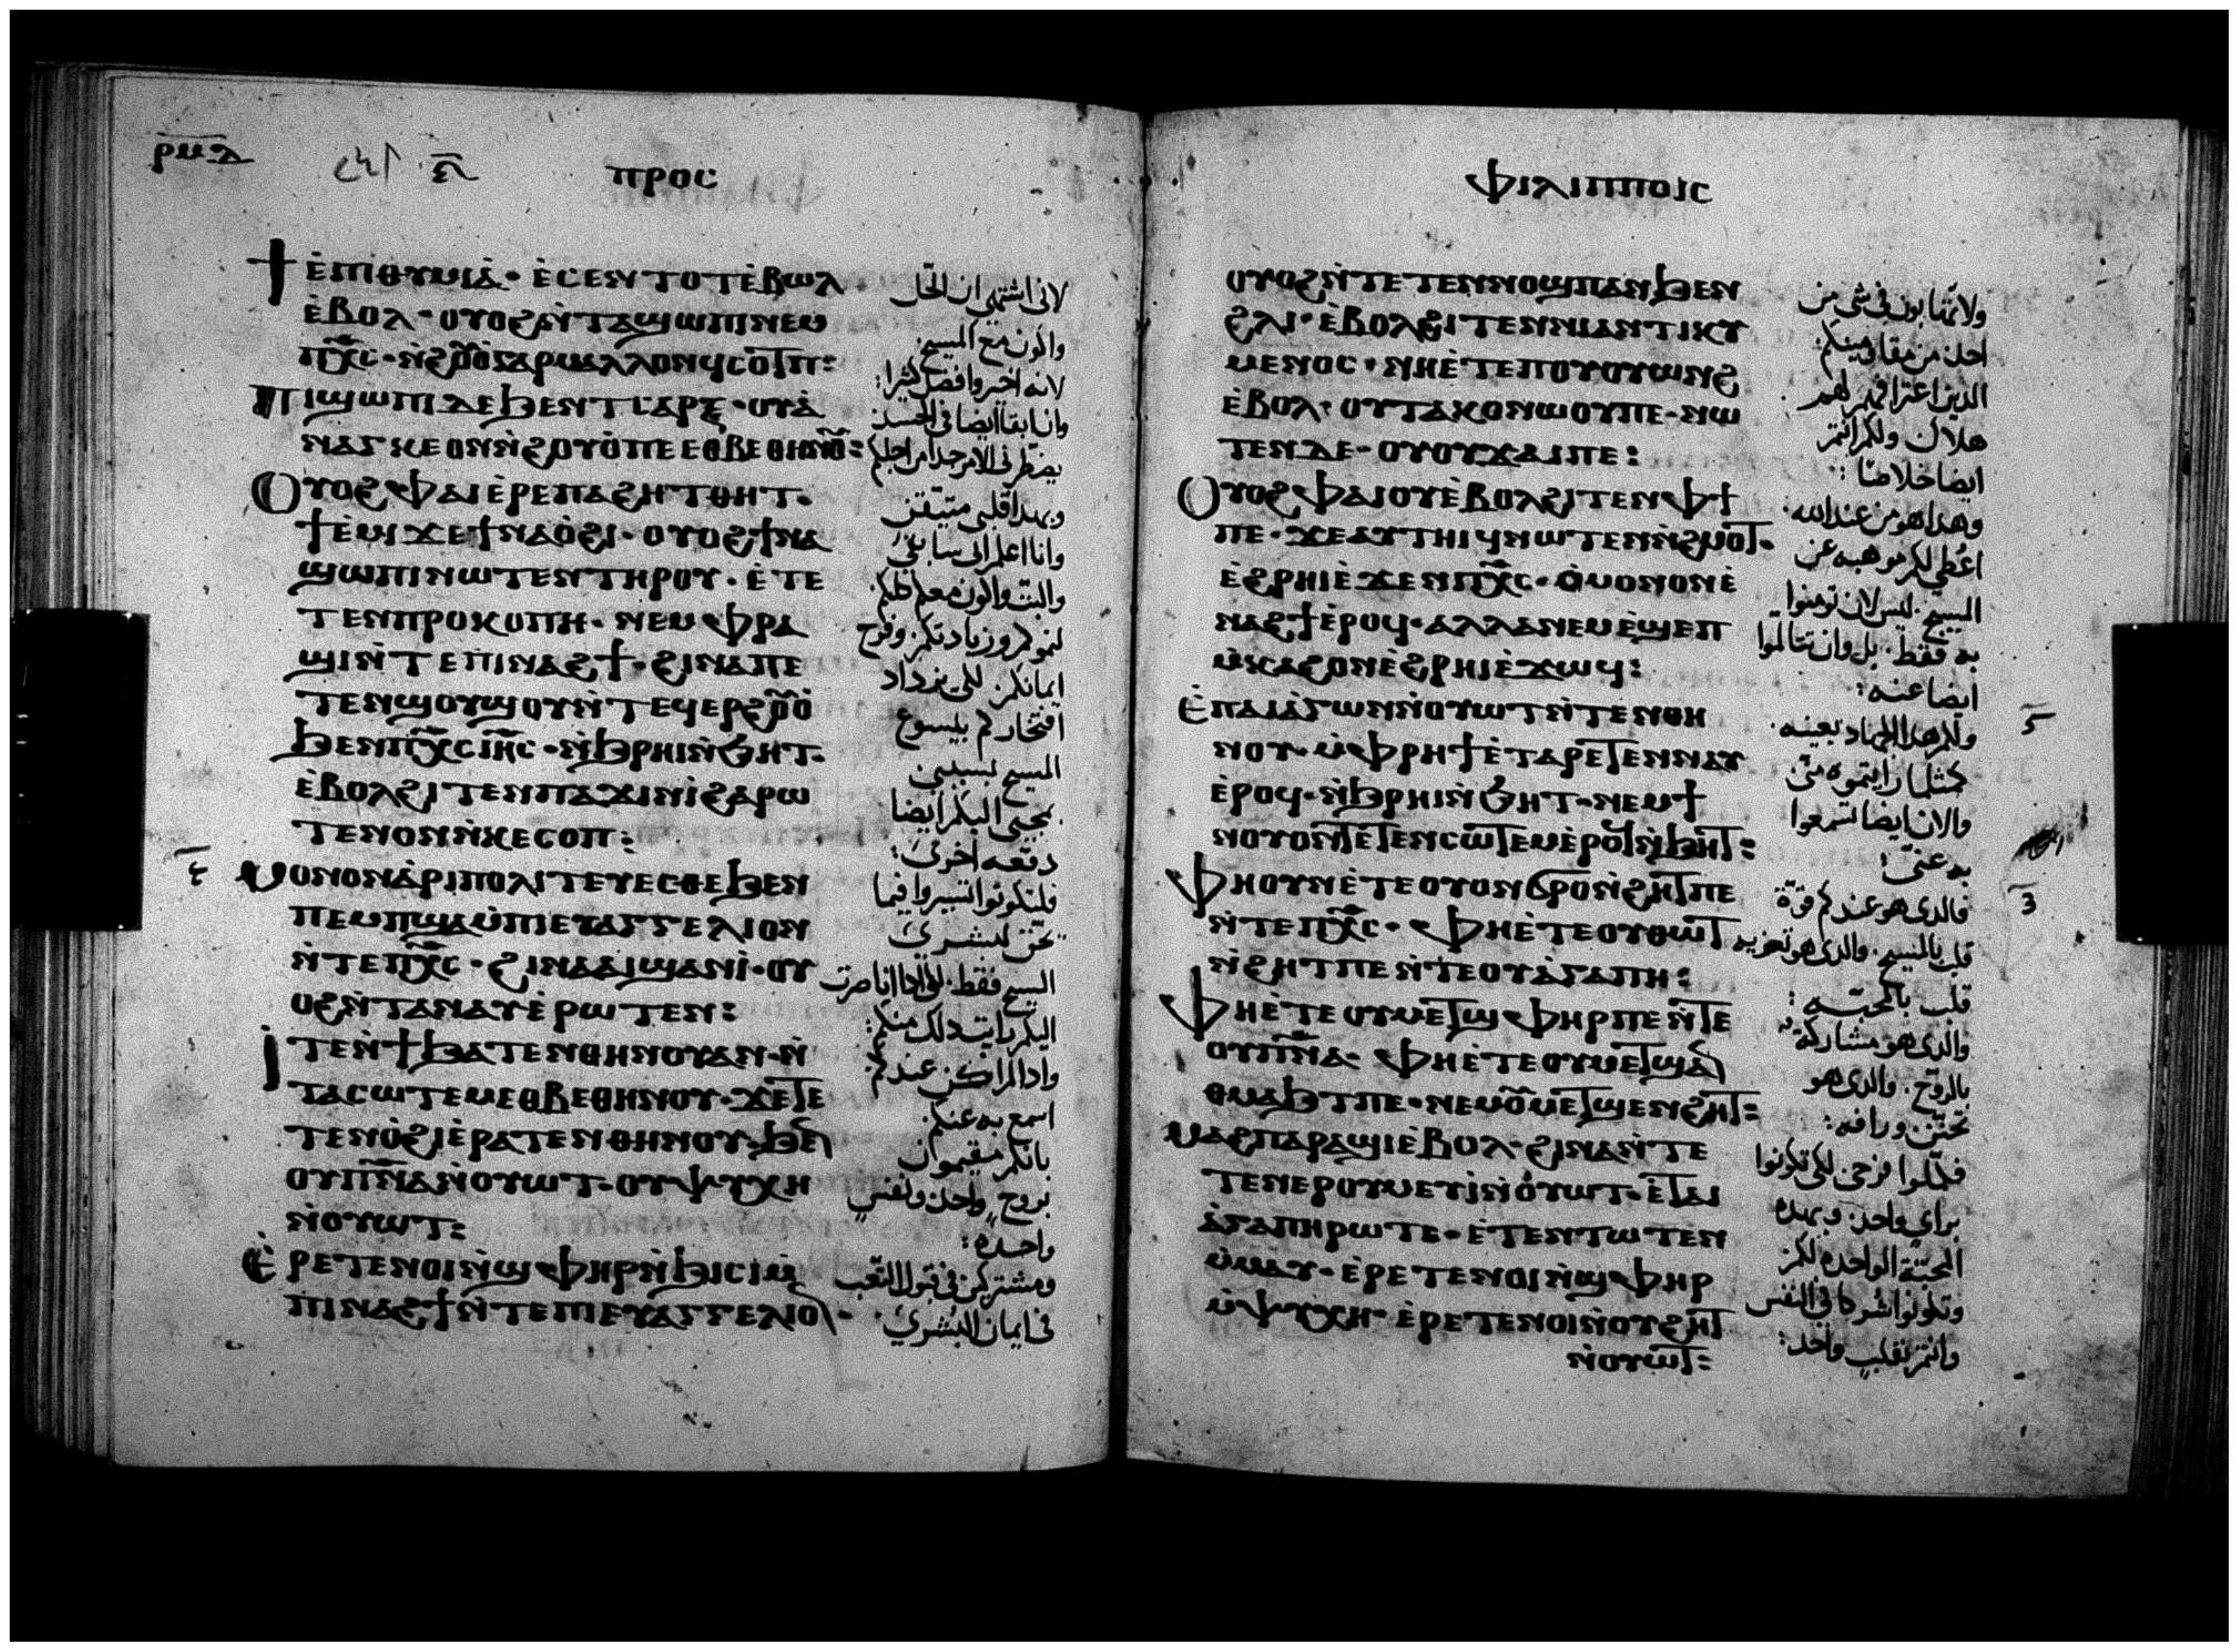 ⲣⲙⲇ
ⲡⲣⲟⲥ
ϯⲉ̀ⲡⲓⲑⲩⲙⲓⲁ̀· ⲉ̀ⲥⲉⲛⲧⲟⲧⲉ̀ⲃⲱⲗ·
ⲉ̀ⲃⲟⲗ· ⲟⲩⲟϩⲛ̀ⲧⲁϣⲱⲡⲓⲛⲉⲙ
ⲡⲭ̅ⲥ· ⲛ̀ϩⲟ̅ⲟ̀ⲅⲁⲣⲙⲁⲗⲗⲟⲛϥⲥⲟⲧⲡ:
ⲡⲓϣⲱⲡⲓⲇⲉϧⲉⲛⲧⲥⲁⲣⲝ· ⲟⲩⲁ̀
ⲛⲁⲅⲕⲉⲟⲛⲛ̀ϩⲟⲩⲟ̀ⲡⲉⲉⲑⲃⲉⲑⲏⲛⲟ̅:
Ⲟⲩⲟϩⲫⲁⲓⲉ̀ⲣⲉⲡⲁϩⲏⲧⲑⲏⲧ·
ϯⲉ̀ⲙⲓϫⲉϯⲛⲁⲟ̀ϩⲓ· ⲟⲩⲟϩϯⲛⲁ
ϣⲱⲡⲓⲛⲱⲧⲉⲛⲧⲏⲣⲟⲩ· ⲉ̀ⲧⲉ
ⲧⲉⲛⲡⲣⲟⲕⲟⲡⲏ· ⲛⲉⲙⲫⲣⲁ
ϣⲓⲛ̀ⲧⲉⲡⲓⲛⲁϩϯ· ϩⲓⲛⲁⲡⲉ
ⲧⲉⲛϣⲟⲩϣⲟⲩⲛ̀ⲧⲉϥⲉⲣϩⲟ̅ⲟ̀
ϧⲉⲛⲡⲭ̅ⲥⲓⲏ̅ⲥ· ⲛ̀ϧⲣⲏⲓⲛ̀ϧⲏⲧ·
ⲉ̀ⲃⲟⲗϩⲓⲧⲉⲛⲡⲁϫⲓⲛⲓ̀ϩⲁⲣⲱ
ⲧⲉⲛⲟⲛⲛ̀ⲕⲉⲥⲟⲡ:
Ⲙⲟⲛⲟⲛⲁ̀ⲣⲓⲡⲟⲗⲓⲧⲉⲩⲉⲥⲑⲉϧⲉⲛ
ⲡⲉⲙⲡϣⲁⲙ̀ⲡⲓⲉⲩⲁⲅⲅⲉⲗⲓⲟⲛ
ⲛ̀ⲧⲉⲡⲭ̅ⲥ· ϩⲓⲛⲁⲁⲓϣⲁⲛⲓ̀· ⲟⲩ
ⲟϩⲛ̀ⲧⲁⲛⲁⲩⲉ̀ⲣⲱⲧⲉⲛ:
Ⲓⲧⲉⲛ̀ϯϧⲁⲧⲉⲛⲑⲏⲛⲟⲩⲁⲛ· ⲛ̀
ⲧⲁⲥⲱⲧⲉⲙⲉⲑⲃⲉⲑⲏⲛⲟⲩ· ϫⲉⲧⲉ
ⲧⲉⲛⲟ̀ϩⲓⲉ̀ⲣⲁⲧⲉⲛⲑⲏⲛⲟⲩ· ϧⲉⲛ
ⲟⲩⲡ̅ⲛ̅ⲁⲛ̀ⲟⲩⲱⲧ· ⲟⲩⲯⲩⲭⲏ
ⲛ̀ⲟⲩⲱⲧ:
Ⲉ̀ⲣⲉⲧⲉⲛⲟⲓⲛ̀ϣⲫⲏⲣⲛ̀ϧⲓⲥⲓⲙ̀
ⲡⲓⲛⲁϩϯⲛ̀ⲧⲉⲡⲓⲉⲩⲁⲅⲅⲉⲗⲓⲟⲛ·
لانى اشتهى ان انحل
واكون مع المسيح
لانه اخير وافضل كثيرا:
وانا بقا ايضا فى الجسد
يضطرنى الامر جدا من اجلكم
وبهدا قلبى متيقن
وانا اعلم انى سابقى
واثبت واكون معكم كلكم
لنموكم وزيادتكم وفرح
ايمانكم لكى يزداد
افتخاركم بيسوع
المسيح بسببى
بمجيى اليكم ايضا
دفعه اخرى:
فلتكونوا تسيروا فيما
تحق لبشرى
المسيح فقط لكى ادا انا صرت
اليكم رايت دلك منكم:
وادا لم اكن عندكم
اسمع به عنكم
بانكم مقيمون
بروح واحد ونفس
واحده:
ومشتركين فى قبول التعب
فى ايمان البشرى
ⲫⲓⲗⲓⲡⲡⲟⲓⲥ
ⲟⲩⲟϩⲛ̀ⲧⲉⲧⲉⲛⲛⲟϣⲡⲁⲛϧⲉⲛ
ϩⲗⲓ· ⲉ̀ⲃⲟⲗϩⲓⲧⲉⲛⲛⲓⲁⲛⲧⲓⲕⲩ
ⲙⲉⲛⲟⲥ· ⲛⲏⲉ̀ⲧⲉⲡⲟⲩⲟⲩⲱⲛϩ
ⲉ̀ⲃⲟⲗ· ⲟⲩⲧⲁⲕⲟⲛⲱⲟⲩⲡⲉ· ⲛⲱ
ⲧⲉⲛⲇⲉ· ⲟⲩⲟⲩϫⲁⲓⲡⲉ:
Ⲟⲩⲟϩⲫⲁⲓⲟⲩⲉ̀ⲃⲟⲗϩⲓⲧⲉⲛⲫϯ
ⲡⲉ· ϫⲉⲁⲩⲧⲏⲓϥⲛⲱⲧⲉⲛⲛ̀ϩⲙⲟⲧ·
ⲉ̀ϩⲣⲏⲓⲉ̀ϫⲉⲛⲡⲭ̅ⲥ· ⲟ̀ⲩⲙⲟⲛⲟⲛⲉ̀
ⲛⲁϩϯⲉ̀ⲣⲟϥ· ⲁⲗⲗⲁⲛⲉⲙⲉ̀ϣⲉⲡ
ⲙ̀ⲕⲁϩⲟⲛⲉ̀ϩⲣⲏⲓⲉ̀ϫⲱϥ:
Ⲉ̀ⲡⲁⲓⲁ̀ⲅⲱⲛⲛ̀ⲟⲩⲱⲧⲛ̀ⲧⲉⲛⲑⲏ
ⲛⲟⲩ· ⲙ̀ⲫⲣⲏϯⲉ̀ⲧⲁⲣⲉⲧⲉⲛⲛⲁⲩ
ⲉ̀ⲣⲟϥ· ⲛ̀ϧⲣⲏⲓⲛ̀ϧⲏⲧ· ⲛⲉⲙϯ
ⲛⲟⲩⲟⲛⲧⲉⲧⲉⲛⲥⲱⲧⲉⲙⲉ̀ⲣⲟϥⲛ̀ϧⲏⲧ:
Ⲫⲏⲟⲩⲛⲉ̀ⲧⲉⲟⲩⲟⲛϭⲣⲟⲛ̀ϩⲏⲧⲡⲉ
ⲛ̀ⲧⲉⲡⲭ̅ⲥ· ⲫⲏⲉ̀ⲧⲉⲟⲩⲑⲱⲧ
ⲛ̀ϩⲏⲧⲡⲉⲛ̀ⲧⲉⲟⲩⲁ̀ⲅⲁⲡⲏ:
Ⲫⲏⲉ̀ⲧⲉⲟⲩⲙⲉⲧϣⲫⲏⲣⲡⲉⲛ̀ⲧⲉ
ⲟⲩⲡ̅ⲛ̅ⲁ· ⲫⲏⲉ̀ⲧⲉⲟⲩⲙⲉⲧϣⲁⲛ
ⲑⲙⲁϧⲧⲡⲉ· ⲛⲉⲙⲟ̅ⲙⲉⲧϣⲉⲛϩⲏⲧ:
Ⲙⲁϩⲡⲁⲣⲁϣⲓⲉ̀ⲃⲟⲗ· ϩⲓⲛⲁⲛ̀ⲧⲉ
ⲧⲉⲛⲉⲣⲟⲩⲙⲉⲩⲓ̀ⲛ̀ⲟ̀ⲩⲱⲧ· ⲉ̀ⲧⲁⲓ
ⲁ̀ⲅⲁⲡⲏⲣⲱⲧⲉ· ⲉ̀ⲧⲉⲛⲧⲱⲧⲉⲛ
ⲙ̀ⲙⲁⲩ· ⲉ̀ⲣⲉⲧⲉⲛⲟⲓⲛ̀ϣⲫⲏⲣ
ⲙ̀ⲯⲩⲭⲏ· ⲉ̀ⲣⲉⲧⲉⲛⲟⲓⲛ̀ⲟⲩϩⲏⲧ
ⲛ̀ⲟⲩⲱⲧ:
ولا تهابون فى شى من
احد من مقاومينكم:
الدين اعترافهم لهم
هلاك ولكم انتم
ايضا خلاصا:
وهدا هو من عند الله
اعطى لكم موهبه عن
المسيح ليس لان تومنوا
به فقط· بل وان تتالموا
ايضا عنه:
ولكم هدا الجهاد بعينه·
كمثلما رايتموه منى
والان ايضا تسمعوا
به عنى:
فالدى هو عندكم قوة
قلب بالمسيح· والدى هو تعزيه
قلب بالمحبه:
والدى هو مشاركة
بالروح· والدى هو
تحنن ورافه:
فكملوا فرحى لكى تكونوا
براى واحد· وبهده
المحبة الواحده لكم
وتكونوا شركا فى النفس
وانتم بقلب واحد: